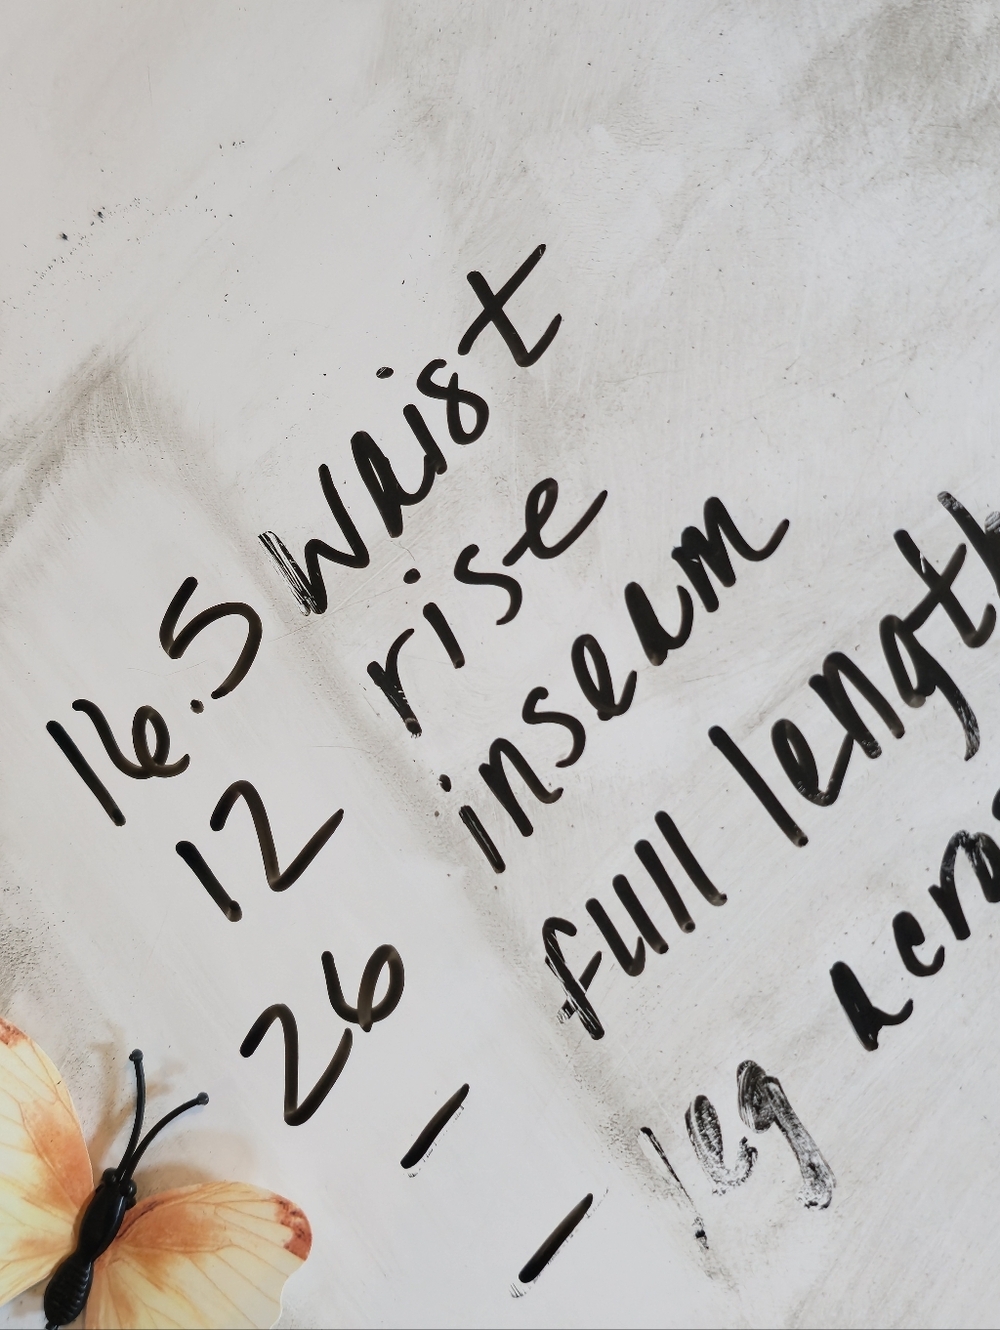 16.5 waist
12 rise
26 inseam
- full length
- leg acros